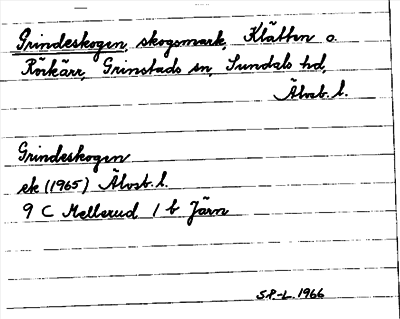 Grindeskogen, skogsmark, Klätten o.
Rörkärr, Grinstads sn, Sundals hd,
Älvsb. l.
Grindeskogen
ek (1965) Älvsb. l.
9 C Mellerud 1 b Järn
S.P.-L. 1966